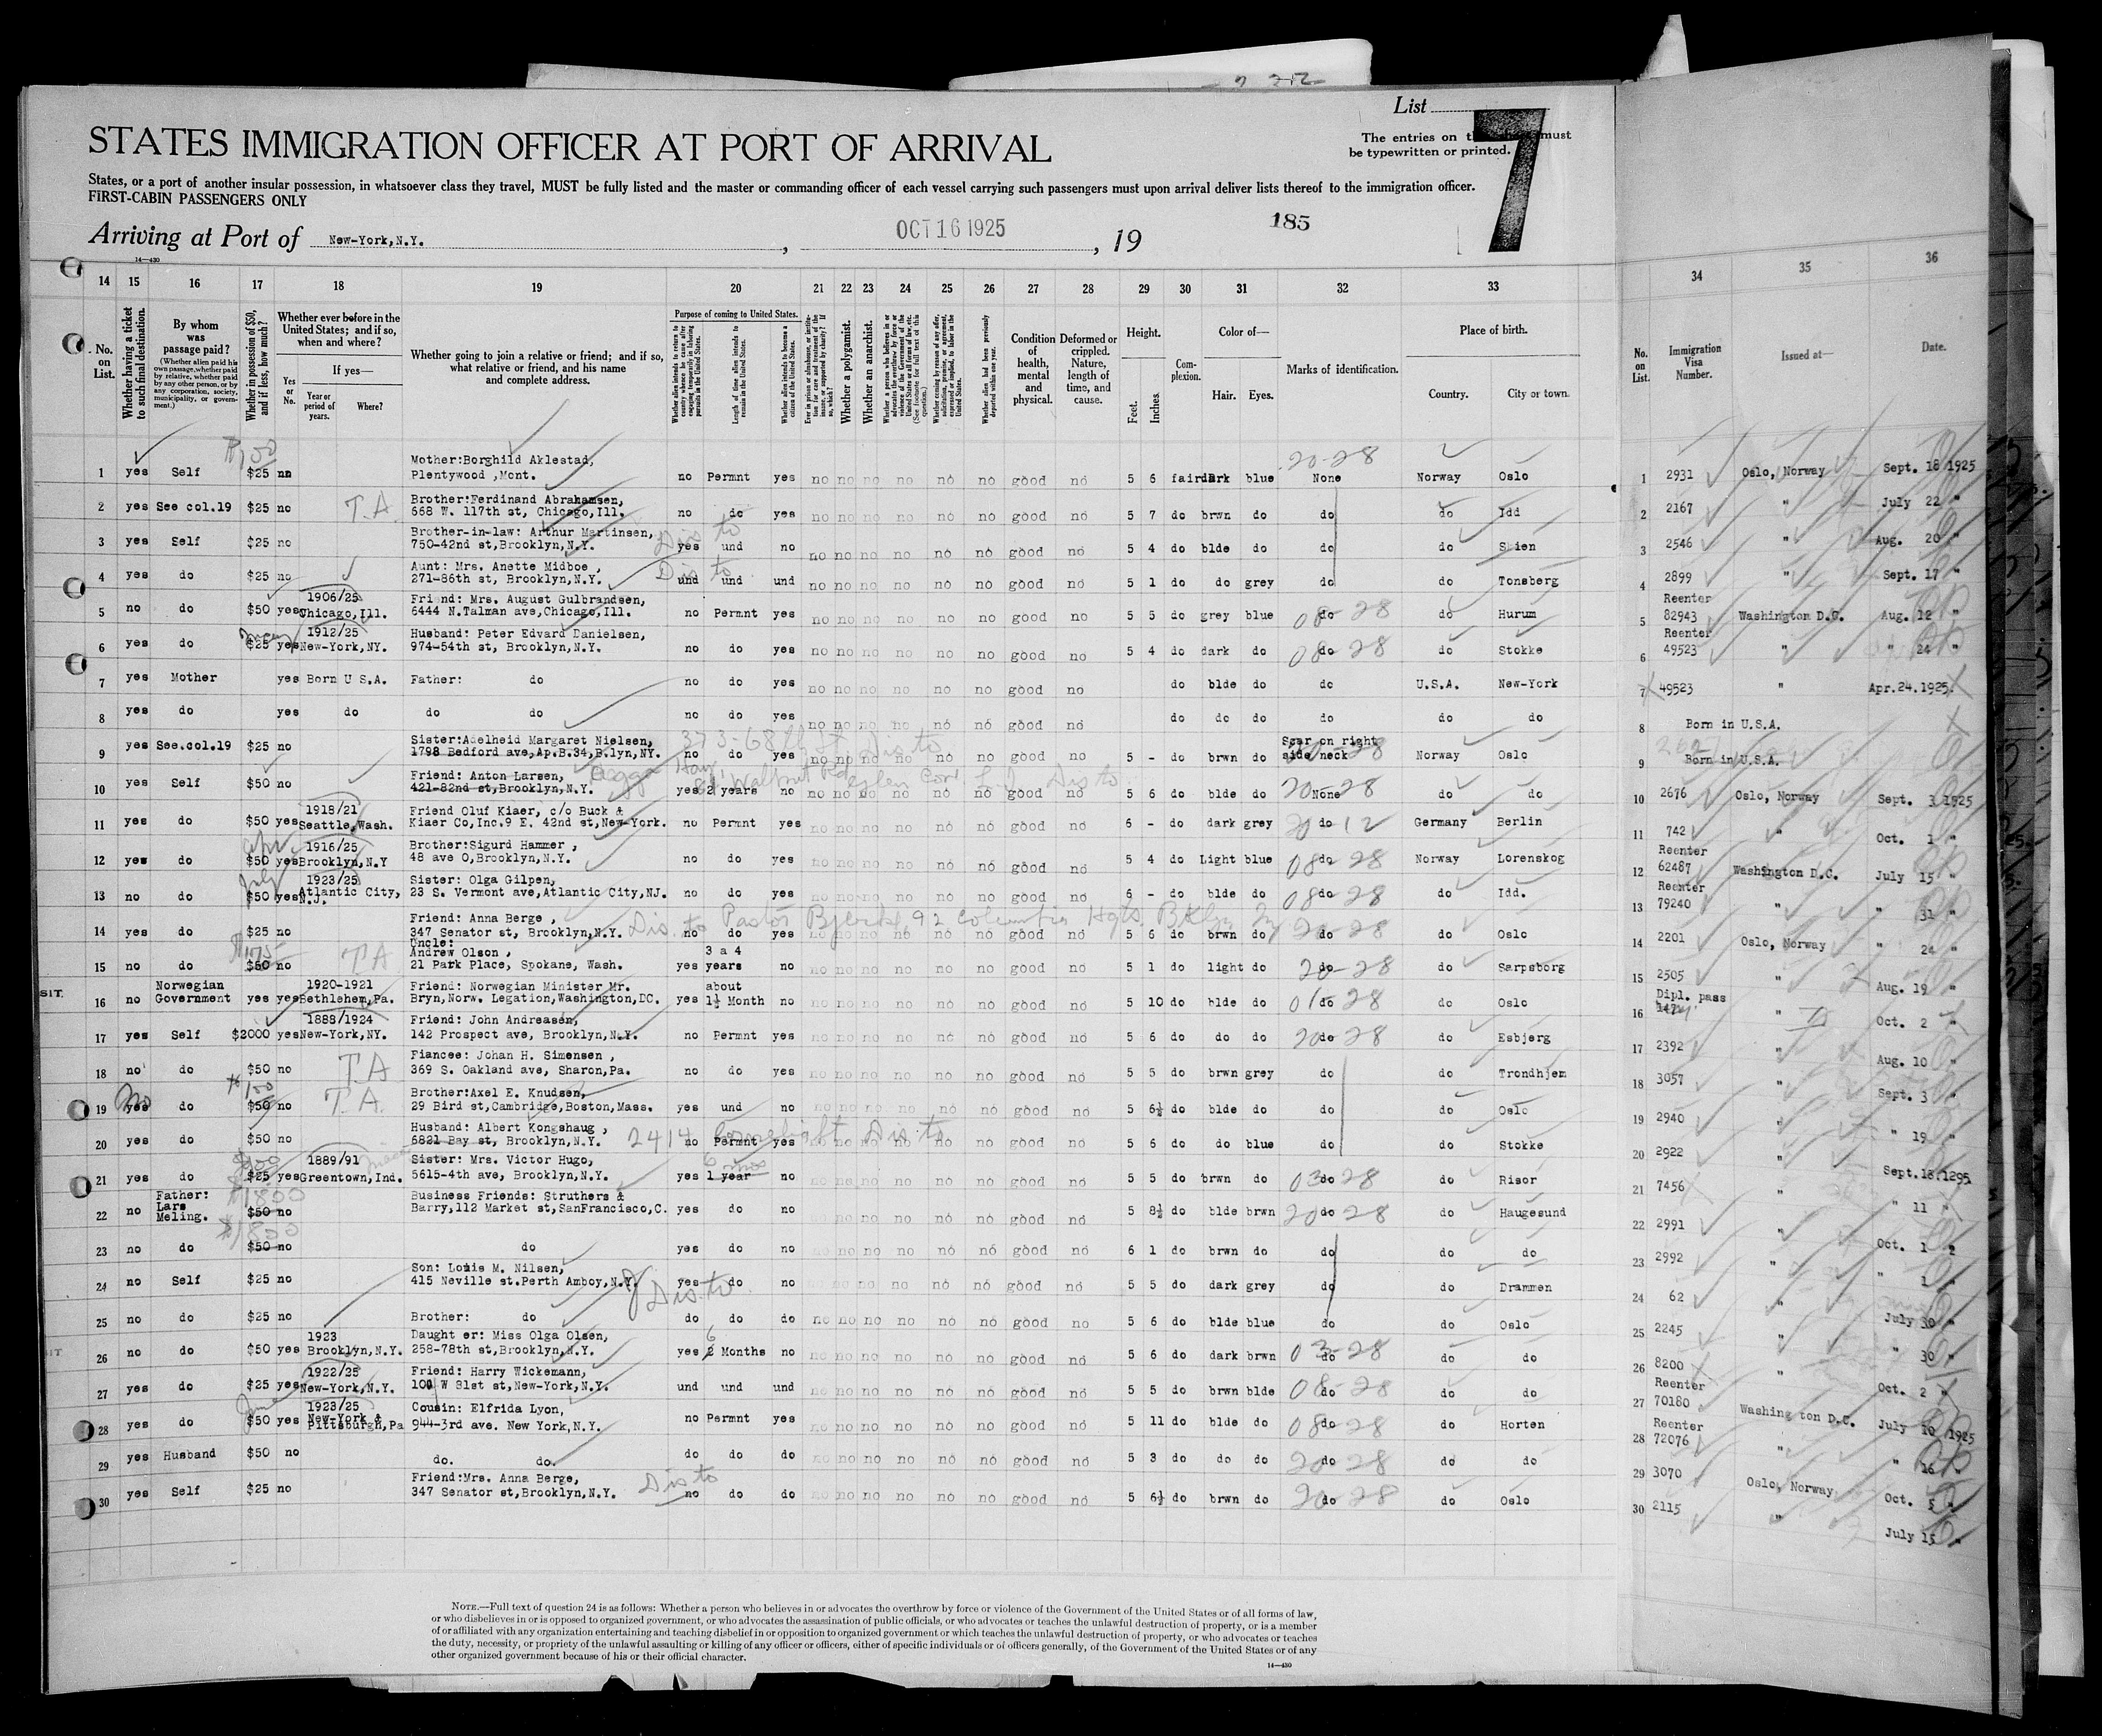 List
7
The entries on must
be typewritten or printed.
STATES IMMIGRATION OFFICER AT PORT OF ARRIVAL
States, or a port of another insular possession, in whatsoever class they travel, MUST be fully listed and the master or commanding officer of each vessel carrying such passengers must upon arrival deliver lists thereof to the immigration officer.
FIRST-CABIN PASSENGERS ONLY
Arriving at Port of New-York,N.Y. , OCT 16 1925 , 19 185
14—430
14 15 16 17 18 19 20 21 22 23 24 25 26 27 28 29 30 31 32 33 34 35 36
No. on List.
Whether having a ticket to such final destination.
By whom was passage paid?
(Whether alien paid his own passage, whether paid by relative, whether paid by any other person, or by any corporation, society, municipality, or government.)
Whether in possession of $50, and if less, how much?
Whether ever before in the United States; and if so, when and where?
Yes or No.
If yes—
Year or period of years.
Where?
Whether going to join a relative or friend; and if so, what relative or friend, and his name and complete address.
Purpose of coming to United States.
Whether alien intends to return to country whence he came after engaging temporarily in laboring pursuits in the United States.
Length of time alien intends to remain in the United States.
Whether alien intends to become a citizen of the United States.
Ever in prison or almshouse, or institution for care and treatment of the insane, or supported by charity? If so, which?
Whether a polygamist.
Whether an anarchist.
Whether a person who believes in or advocates the overthrow by force or violence of the Government of the United States or all forms of law, etc. (See footnote for full text of this question.)
Whether coming by reason of any offer, solicitation, promise, or agreement, expressed or implied, to labor in the United States.
Whether alien had been previously deported within one year.
Condition of health, mental and physical.
Deformed or crippled. Nature, length of time, and cause.
Height.
Feet. Inches.
Complexion.
Color of—
Hair. Eyes.
Marks of identification.
Place of birth.
Country. City or town.
No. on List.
Immigration Visa Number.
Issued at—
Date.
1 yes Self $100 $25 nn Mother:Borghild Aklestad, Plentywood ,Mont. no Permnt yes no no no no no no good no 5 6 fair dark blue 20-28 None Norway Oslo 1 2931 Oslo, Norway Sept. 18 1925
2 yes See col.19 $25 no T.A. Brother:Ferdinand Abrahamsen, 668 W. 117th st, Chicago,Ill. no do yes no no no no no no good no 5 7 do brwn do do do Idd 2 2167 " July 22 "
3 yes Self $25 no Brother-in-law: Arthur Martinsen, 750-42nd st,Brooklyn,N.Y. Dis to yes und no no no no no no no good no 5 4 do blde do do do Skien 3 2546 " Aug. 20 "
4 yes do $25 no Aunt: Mrs. Anette Midboe , 271-86th st, Brooklyn,N.Y. Dis to und und und no no no no no no good no 5 1 do do grey do do Tonsberg 4 2899 " Sept. 17 "
5 no do $50 yes 1906/25 Chicago,Ill. Friend: Mrs. August Gulbrandsen, 6444 N.Talman ave,Chicago,Ill. no Permnt yes no no no no no no good no 5 5 do grey blue 08-28 do do Hurum 5 Reenter 82943 Washington D.C. Aug. 12 "
6 yes do $25 yes 1912/25 New-York,NY. Husband: Peter Edvard Danielsen, 974-54th st, Brooklyn,N.Y. no do yes no no no no no no good no 5 4 do dark do 08-28 do do Stokke 6 Reenter 49523 " " 24 "
7 yes Mother yes Born U S.A. Father: do no do yes no no no no no no good no do blde do do U.S.A. New-York 7 49523 " Apr.24.1925.
8 yes do yes do do do no do yes no no no no no no good no do do do do do do 8 Born in U.S.A.
9 yes See.col.19 $25 no Sister:Adelheid Margaret Nielsen, 1798 Bedford ave,Ap.B.34,B.lyn,NY. 373-68th St Dis to no do yes no no no no no no good no 5 - do brwn do Scar on right side neck 20-28 Norway Oslo 9 Born in U.S.A.
10 yes Self $50 no Friend: Anton Larsen, 421-82nd st,Brooklyn,N.Y. Dis to yes 2 years no no no no no no no good no 5 6 do blde do 20-28 None do do 10 2676 Oslo, Norway Sept. 3 1925
11 yes do $50 yes 1918/21 Seattle,Wash. Friend Oluf Kiaer, c/o Buck & Kiaer Co,Inc.9 E. 42nd st,New-York. no Permnt yes no no no no no no good no 6 - do dark grey 20-12 do Germany Berlin 11 742 " Oct. 1 "
12 yes do $50 yes 1916/25 Brooklyn,N.Y Brother:Sigurd Hammer , 48 ave O,Brooklyn,N.Y. no do yes no no no no no no good no 5 4 do Light blue 08-28 do Norway Lorenskog 12 Reenter 62487 Washington D.C. July 15 "
13 no do July $50 yes 1923/25 Atlantic City, N.J. Sister: Olga Gilpen, 23 S. Vermont ave,Atlantic City,NJ. no do yes no no no no no no good no 6 - do blde do 08-28 do do Idd. 13 Reenter 79240 " " 31 "
14 yes do $25 no Friend: Anna Berge , 347 Senator st, Brooklyn,N.Y. Dis. to Pastor 92 Columbia Hgts. Bklyn Ny no do yes no no no no no no good no 5 6 do brwn do 20-28 do do Oslo 14 2201 Oslo, Norway " 24 "
15 no do $175 $50 no T A Uncle: Andrew Olson , 21 Park Place, Spokane, Wash. yes 3 a 4 years no no no no no no no good no 5 1 do light do 20-28 do do Sarpsborg 15 2505 " Aug. 19 "
SIT. 16 no Norwegian Government yes yes 1920-1921 Bethlehem,Pa. Friend: Norwegian Minister Mr. Bryn,Norw. Legation,Washington,DC. yes about 1½ Month no no no no no no no good no 5 10 do blde do 01-28 do do Oslo 16 Dipl. pass " Oct. 2 "
17 yes Self $2000 yes 1888/1924 New-York,NY. Friend: John Andreasen, 142 Prospect ave, Brooklyn,N.Y. no Permnt yes no no no no no no good no 5 6 do do do 20-28 do do Esbjerg 17 2392 " Aug. 10 "
18 no do $50 no T A Fiancee: Johan H. Simensen , 369 S. Oakland ave, Sharon,Pa. no do yes no no no no no no good no 5 5 do brwn grey do do Trondhjem 18 3057 " Sept. 3 "
19 No yes do $100 $50 no T.A. Brother:Axel E. Knudsen, 29 Bird st,Cambridge,Boston,Mass. yes und no no no no no no no good no 5 6½ do blde do do do Oslo 19 2940 " " 19 "
20 yes do $50 no Husband: Albert Kongshaug , 6821 Bay st, Brooklyn,N.Y. 2414 Dis to no Permnt yes no no no no no no good no 5 6 do do blue do do Stokke 20 2922 " Sept.18.1295.
21 yes do $25 yes 1889/91 Greentown,Ind. Sister: Mrs. Victor Hugo, 5615-4th ave, Brooklyn,N.Y. yes 6 mos 1 year no no no no no no no good no 5 5 do brwn do 03-28 do do Risor 21 7456 " " 11 "
22 no Father: Lars Meling. $1800 $50 no Business Friends: Struthers & Barry,112 Market st,SanFrancisco,C. yes do no no no no no no good no 5 8½ do blde brwn 20-28 do do Haugesund 22 2991 " Oct. 1 2
23 no do $1800 $50 no do yes do no no no no no no no good no 6 1 do brwn do do do do 23 2992 " " 1 "
24 no Self $25 no Son: Louis M. Nilsen, 415 Neville st.Perth Amboy,N.Y. J Dis. to yes do no no no no no no no good no 5 5 do dark grey do do Drammen 24 62 " July 30 "
25 no do $25 no Brother: do do do do no no no no no no good no 5 6 do blde blue do do Oslo 25 2245 " " 30 "
26 no do $50 yes 1923 Brooklyn,N.Y. Daught er: Miss Olga Olsen, 258-78th st,Brooklyn,N.Y. yes 6 2 Months no no no no no no no good no 5 6 do dark brwn 03-28 do do do 26 8200 " Oct. 2 "
27 yes do $25 yes 1922/25 New-York,N.Y. Friend: Harry Wickemann, W 81st st,New-York,N.Y. und und und no no no no no no good no 5 5 do brwn blde 08-28 do do do 27 Reenter 70180 Washing ton D.C. July 10 1925
28 yes do June $50 yes 1923/25 New-York & Pittsburgh,Pa Cousin: Elfrida Lyon, 944-3rd ave. New York,N.Y. no Permnt yes no no no no no no good no 5 11 do blde do 08-28 do do Horten 28 Reenter 72076 " " 16 "
29 yes Husband $50 no do. do. do do do no no no no no no good no 5 3 do do do 20-28 do do do 29 3070 Oslo, Norway Oct. 5 "
30 yes Self $25 no Friend:Mrs. Anna Berge, 347 Senator st,Brooklyn,N.Y. Dis to no do do no no no no no no good no 5 6½ do brwn do 20-28 do do Oslo 30 2115 " July 15 "
NOTE.—Full text of question 24 is as follows: Whether a person who believes in or advocates the overthrow by force or violence of the Government of the United States or of all forms of law,
or who disbelieves in or is opposed to organized government, or who advocates the assassination of public officials, or who advocates or teaches the unlawful destruction of property, or is a member
of or affiliated with any organization entertaining and teaching disbelief in or opposition to organized government or which teaches the unlawful destruction of property, or who advocates or teaches
the duty, necessity, or propriety of the unlawful assaulting or killing of any officer or officers, either of specific individuals or of officers generally, of the Government of the United States or of any
other organized government because of his or their official character.
14—430